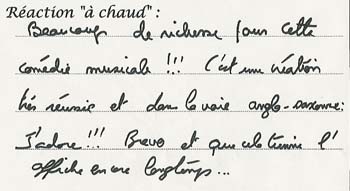 Réaction "à chaud" :
Beaucoup de richesse pour cette
comédie musicale !!! C'est une création
très réussie et dans la voie anglo-saxonne :
J'adore !!! Bravo et que cela tienne l'
affiche encore longtemps...